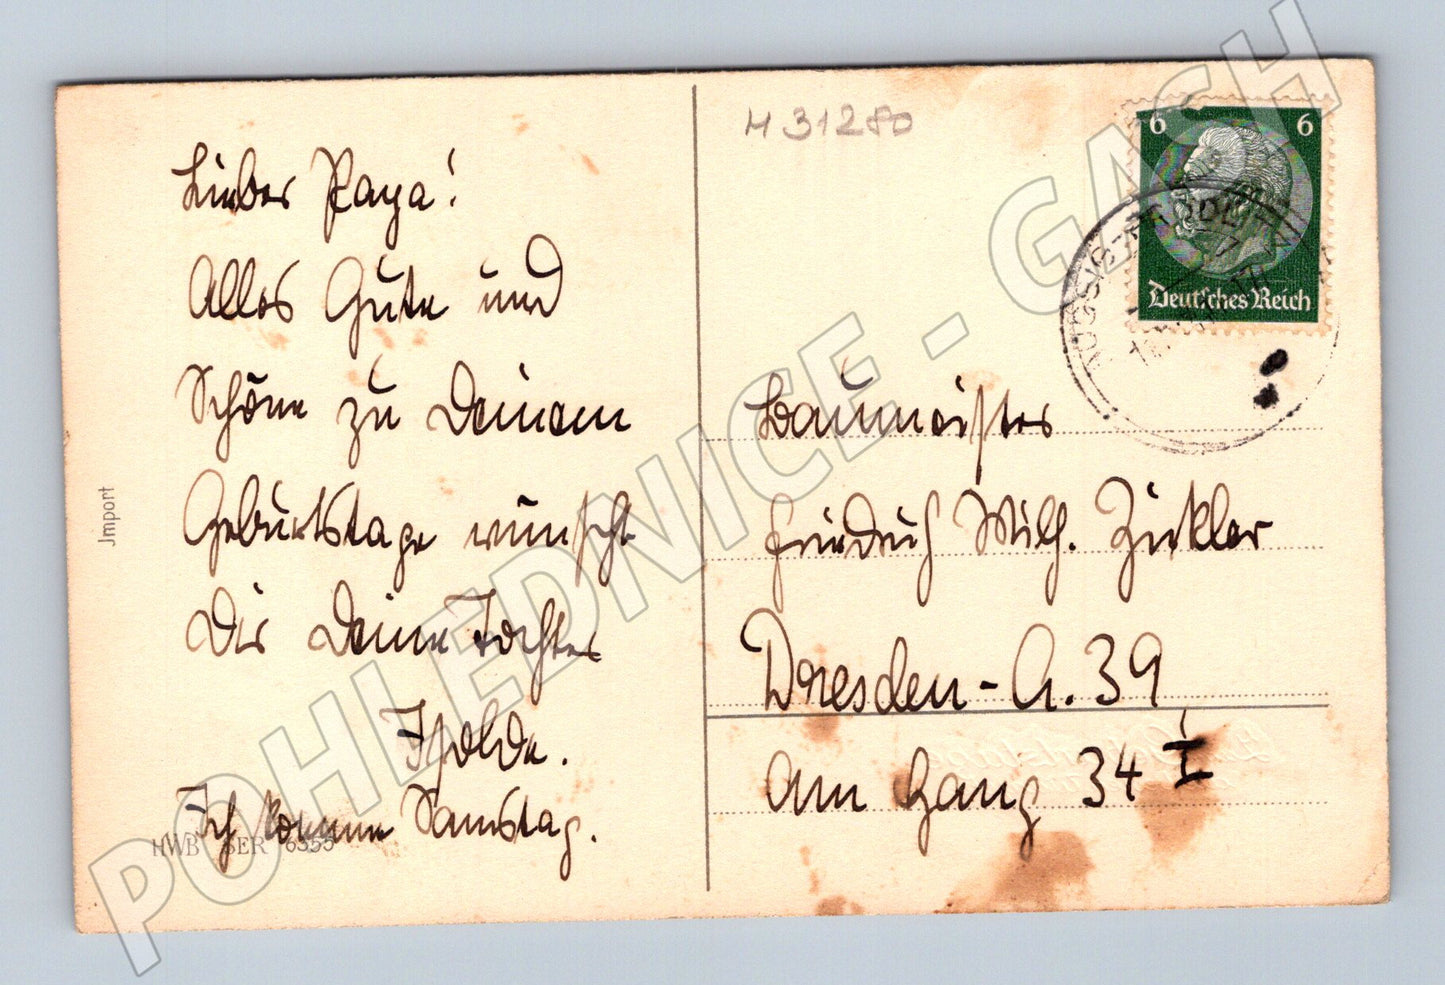 H 31280
Lieber Papa!
Alles Gute und
Schöne zu Deinem
Geburtstage wünscht
Dir Deine Tochter
Isolde.
Ich komme Samstag.
HWB SER 6355
Jmport
6 6
Deutsches Reich
Baumeister
Friedrich Wilh. Zirkler
Dresden-A. 39
Am Hang 34 I
POHLEDNICE - GASH